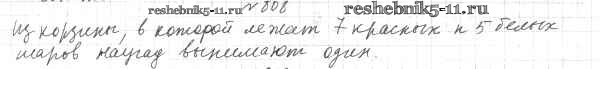 №808
reshebnik5-11.ru reshebnik5-11.ru
Из корзины, в которой лежат 7 красных и 5 белых
шаров наугад вынимают один.